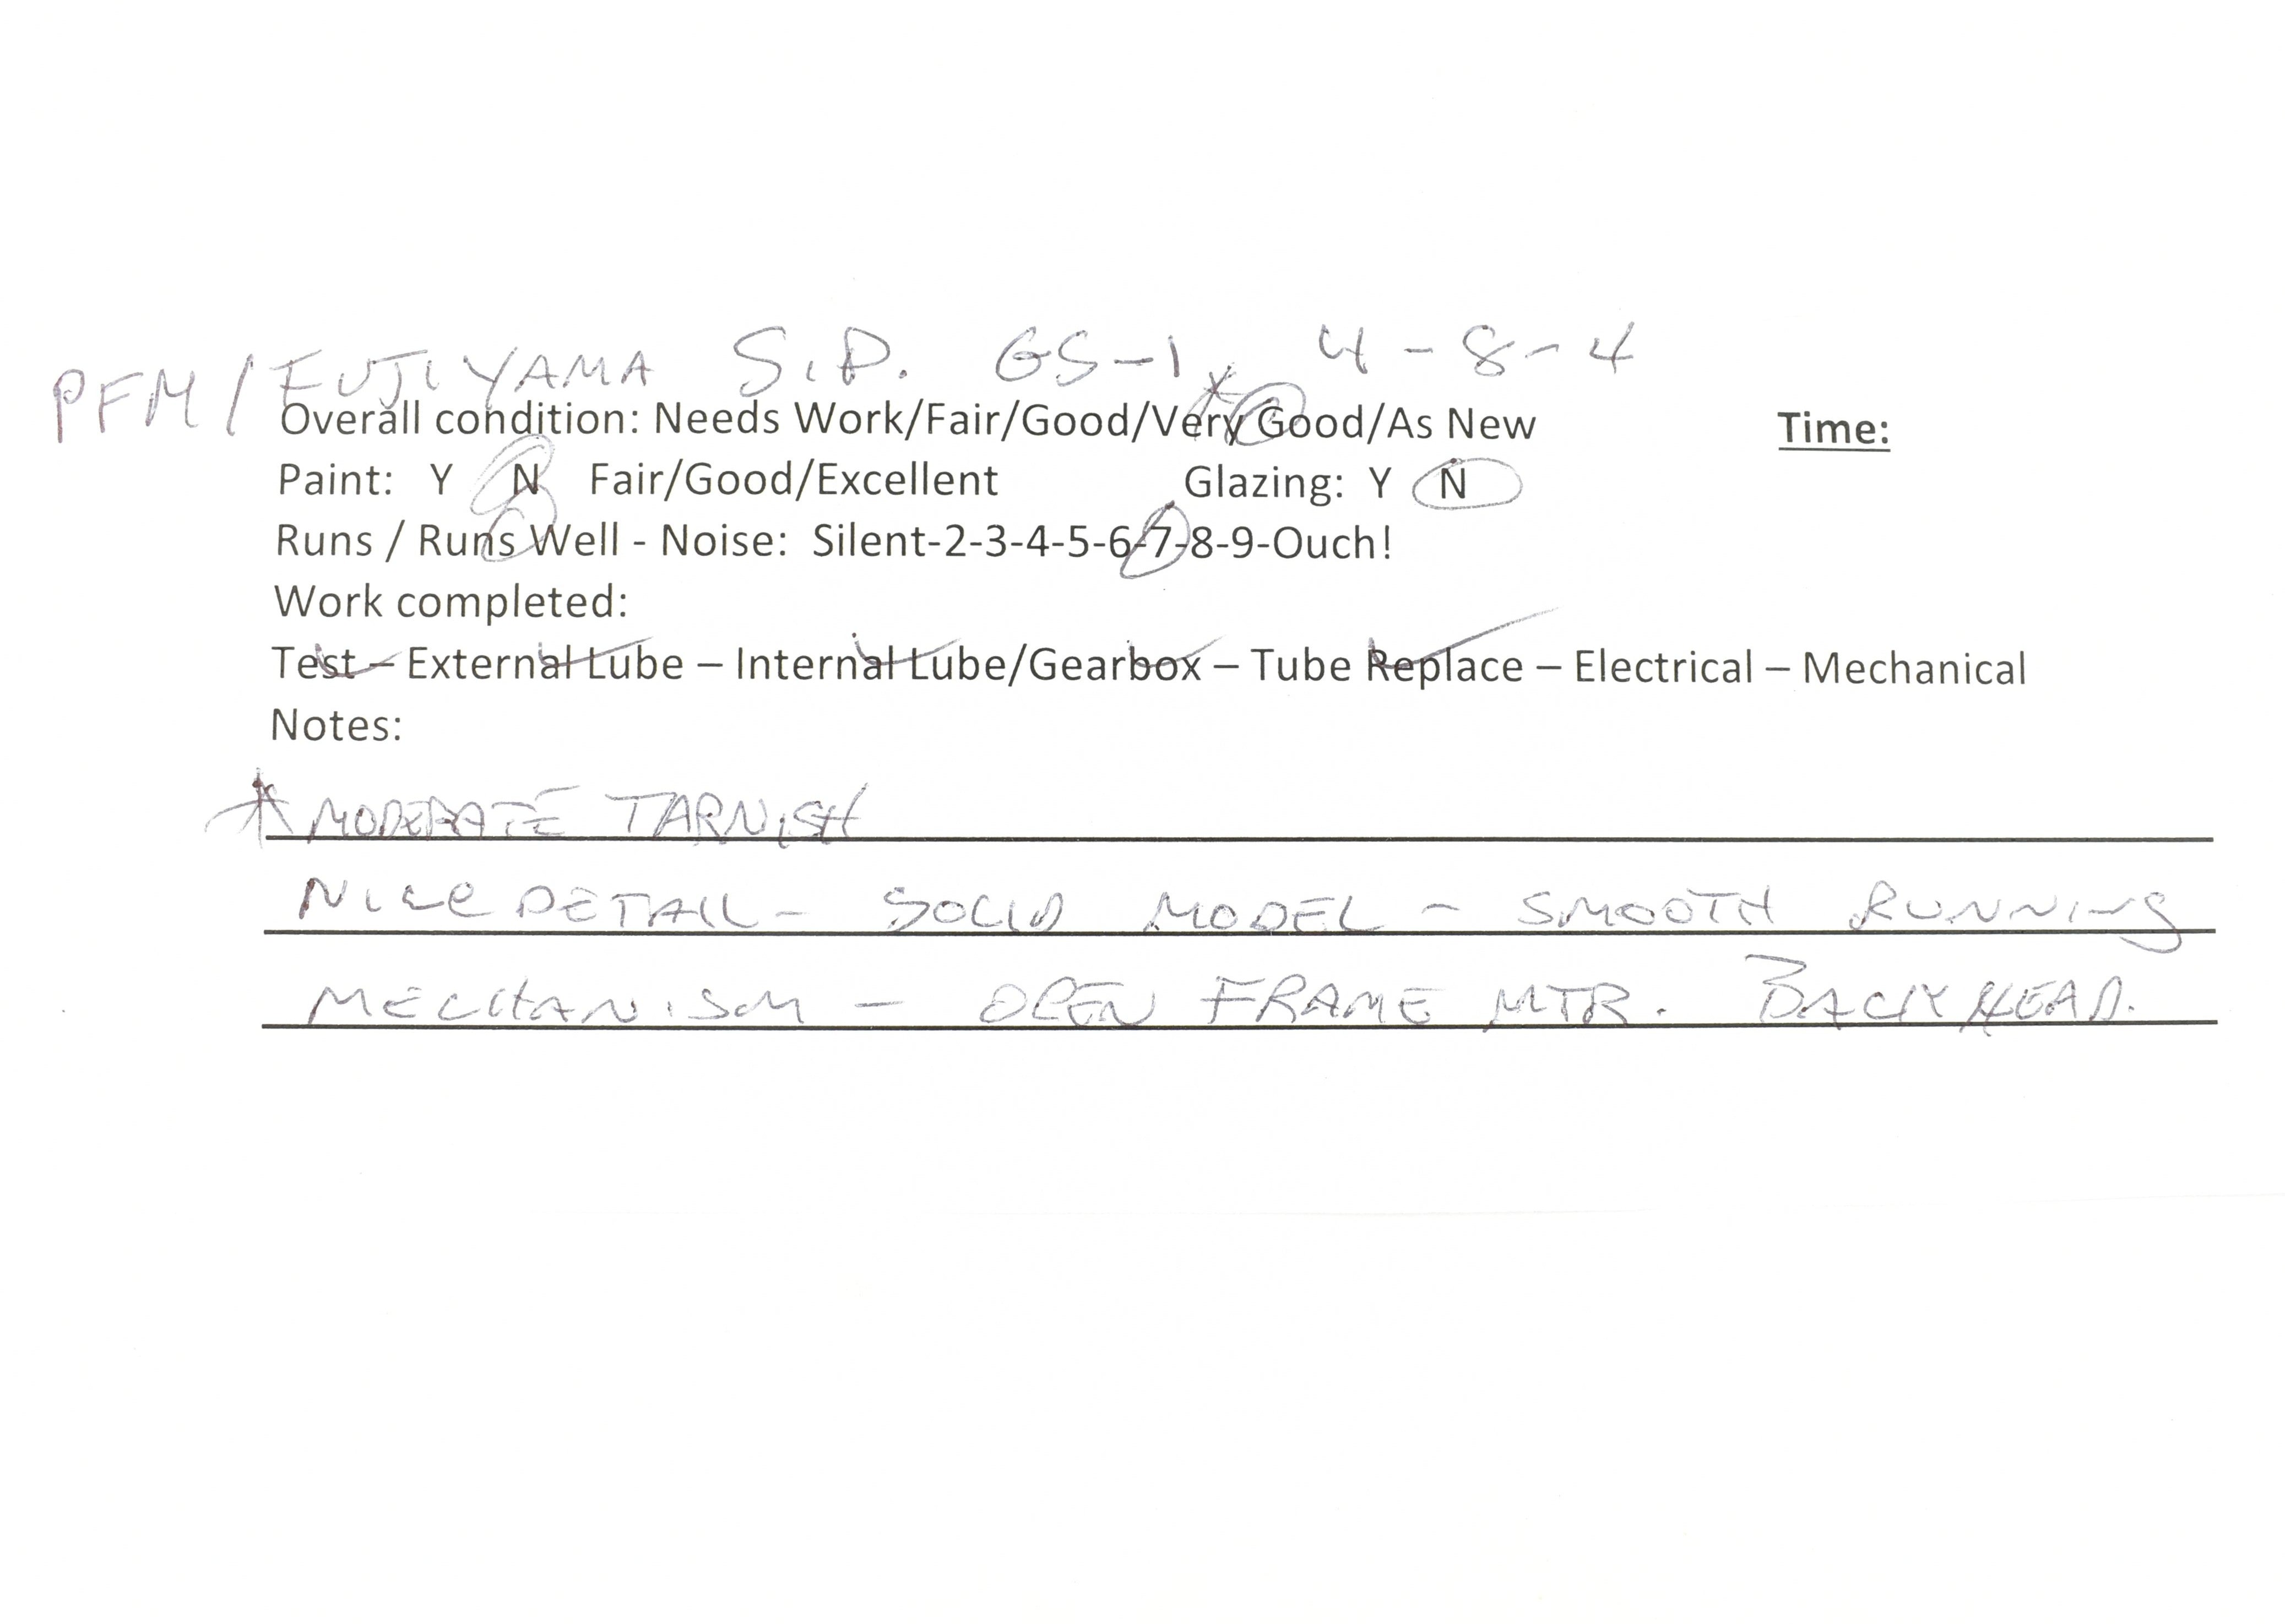 PFM/FUJIYAMA S.P. GS-1 4-8-4
Overall condition: Needs Work/Fair/Good/Very Good/As New Time:
Paint: Y N Fair/Good/Excellent Glazing: Y N
Runs / Runs Well - Noise: Silent-2-3-4-5-6-7-8-9-Ouch!
Work completed:
Test – External Lube – Internal Lube/Gearbox – Tube Replace – Electrical – Mechanical
Notes:
* MODERATE TARNISH
NICE DETAIL - SOLID MODEL - SMOOTH RUNNING
MECHANISM - OPEN FRAME MTR. BACKHEAD.